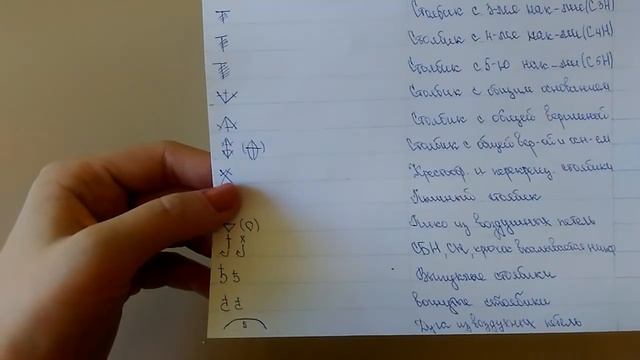 Столбик с 3-мя нак-ми (С3Н)
Столбик с 4-мя нак-ми (С4Н)
Столбик с 5-ю нак-ми (С5Н)
Столбик с общим основанием
Столбик с общей вершиной
Столбик с общей вер-ой и осн-ем
и перекрещ. столбики
столбик
из воздушных петель
СБН, СН, крючок вкалывается
Выпуклые столбики
вогнутые столбики
5 Дуга из воздушных петель